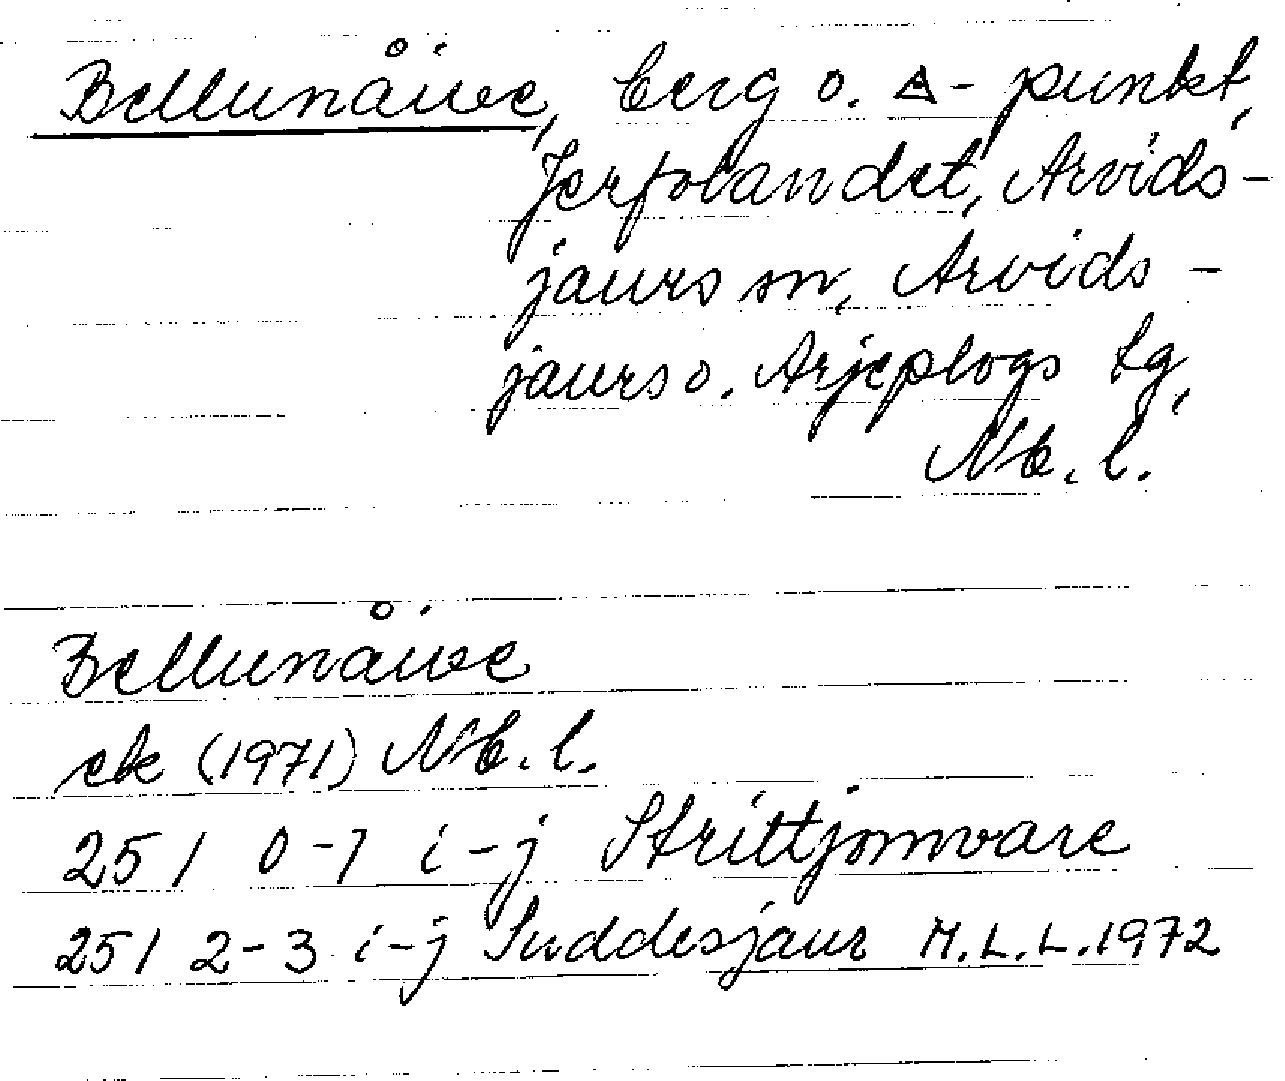 Bellunåive, berg o. △-punkt,
Jerfolandet, Arvids-
jaurs sn, Arvids-
jaurs o. Arjeplogs tg,
Nb. l.
Bellunåive
ek (1971) Nb. l.
25 I 0-1 i-j Strittjomvare
25 I 2-3 i-j Suddesjaur M.L.L. 1972